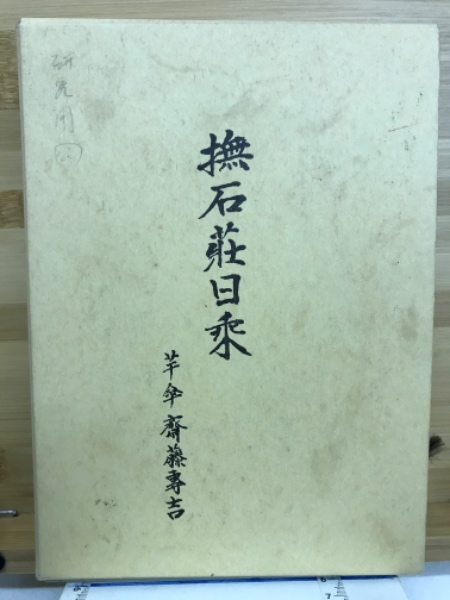 撫石莊日乘
芋傘 齋藤專吉
研究用